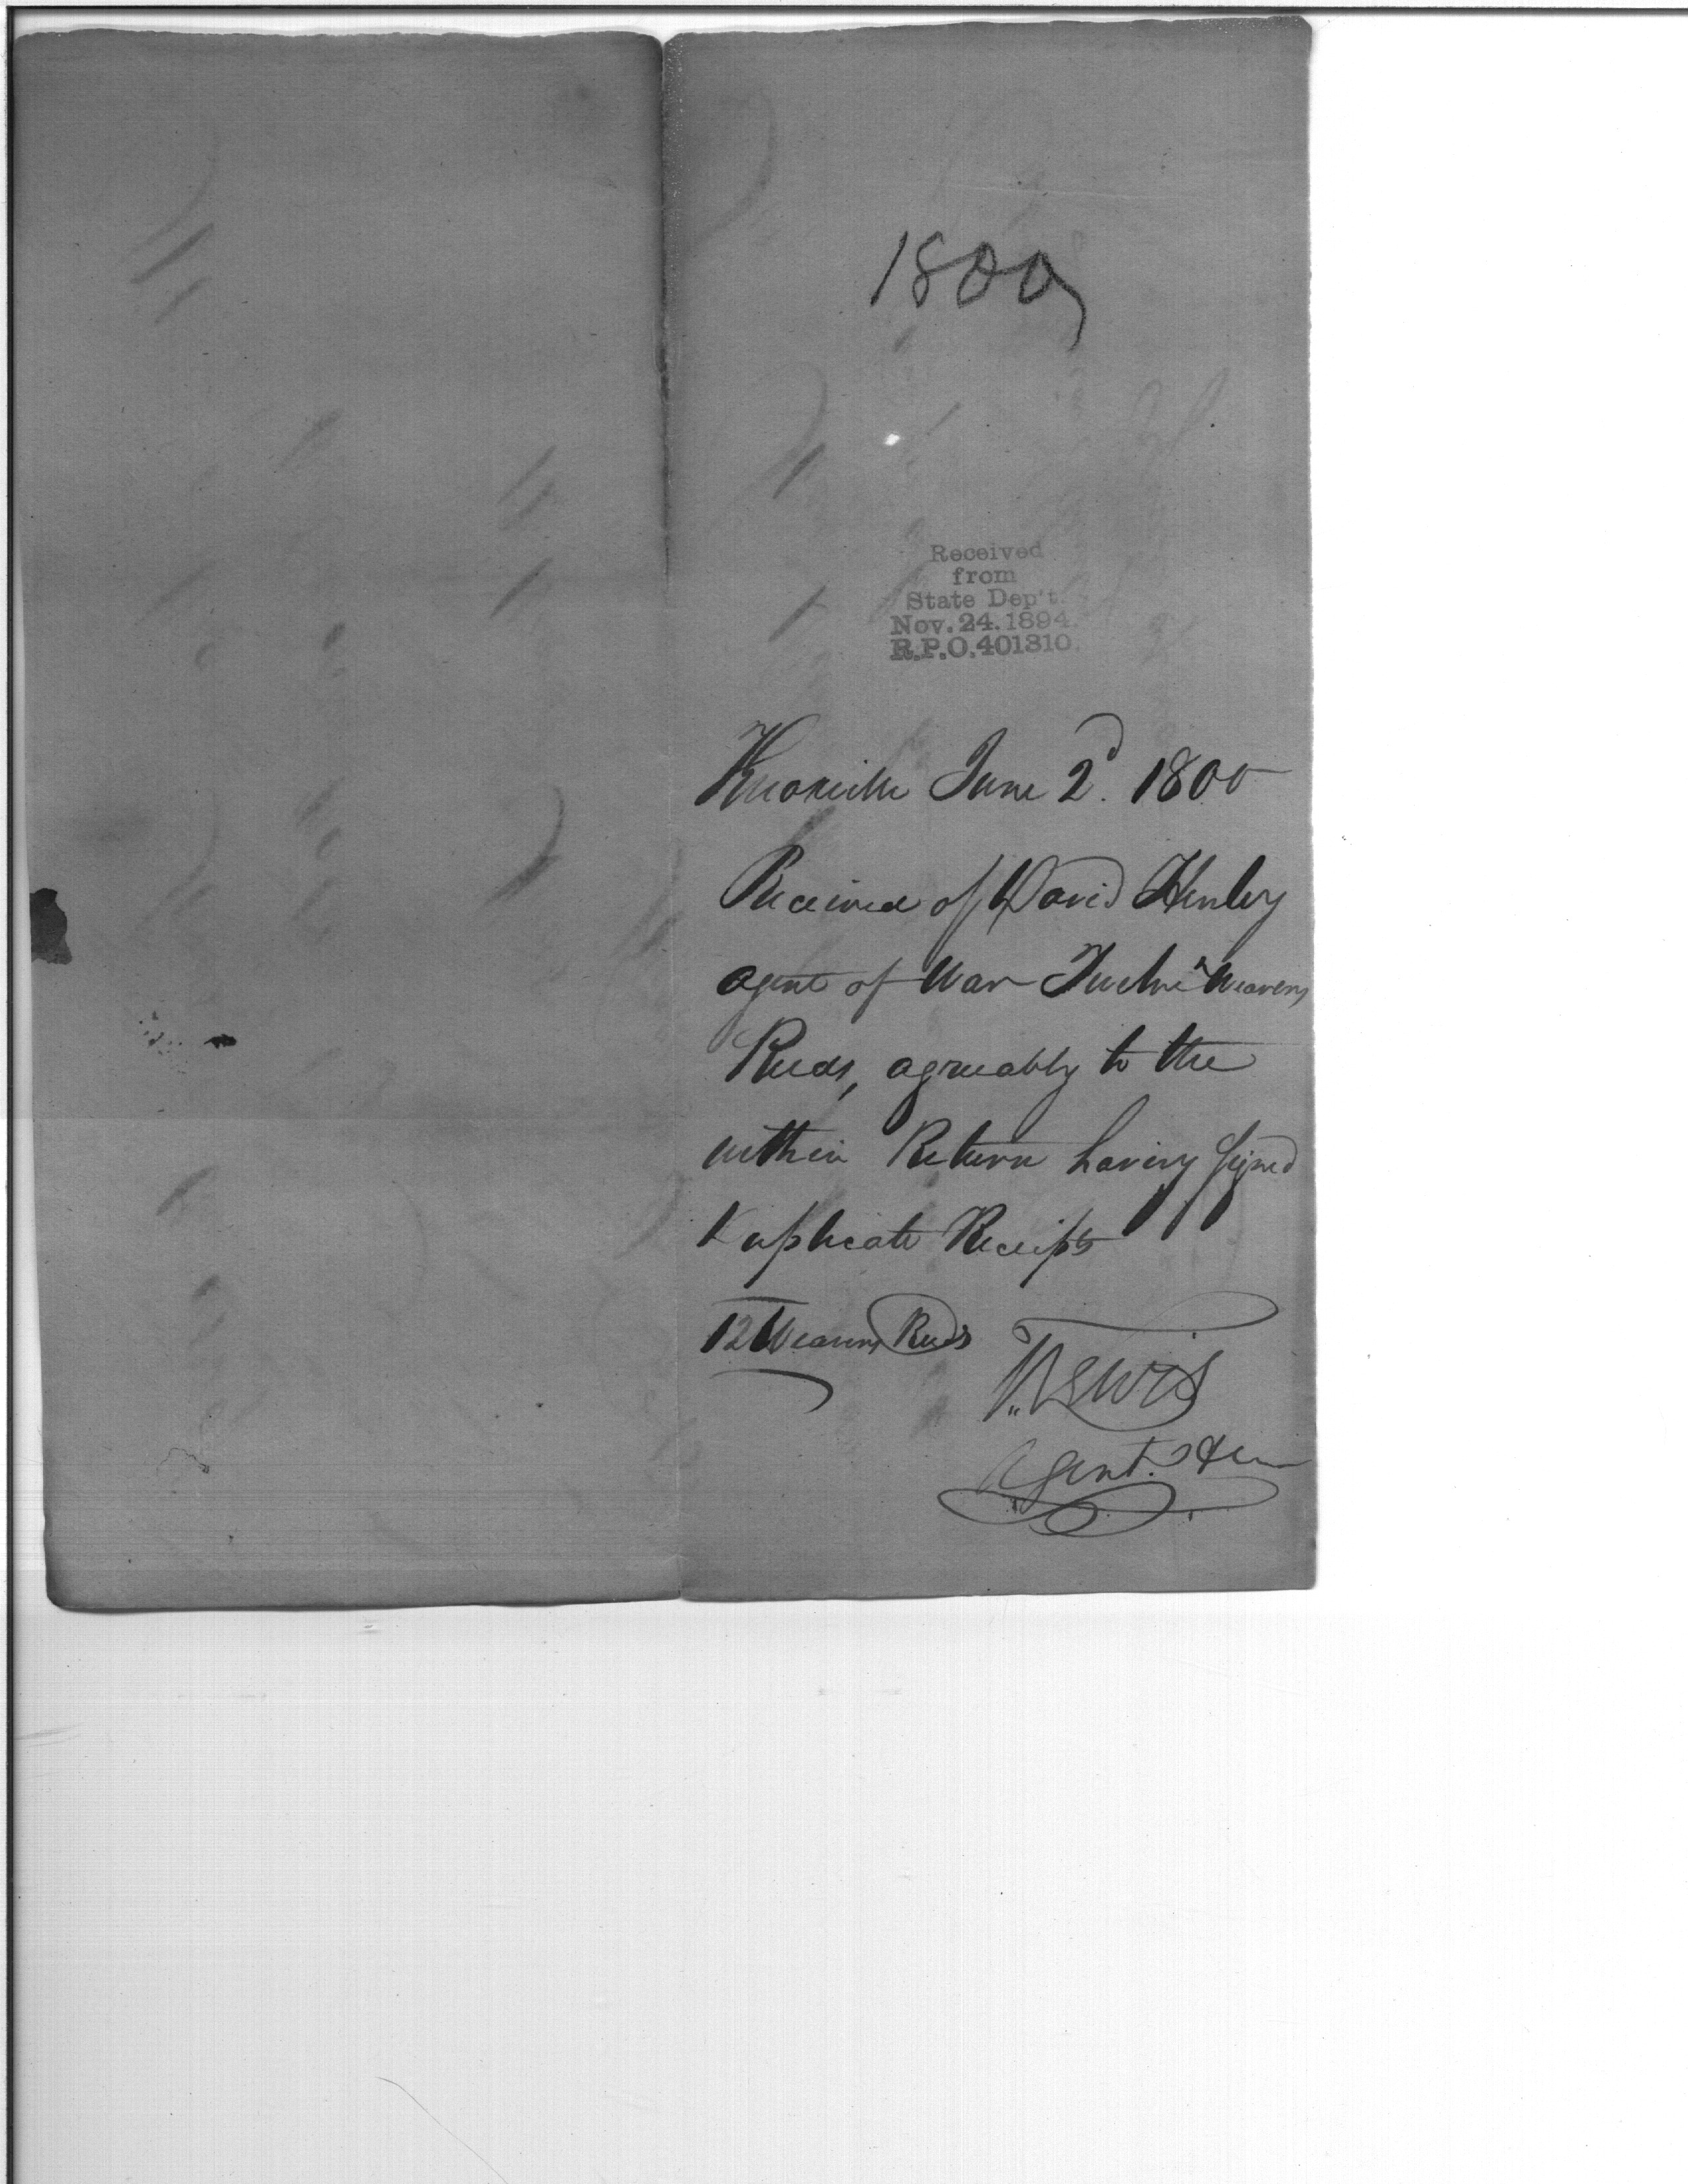 1800
Received
from
State Dep't.
Nov. 24. 1894.
R.P.O. 401310.
Knoxville June 2d. 1800
Received of David Henley
agent of War Twelve Weavers
Reeds, agreeably to the
within Return having signed
Duplicate Receipts
12 Weavers Reeds
Lewis
Agent.